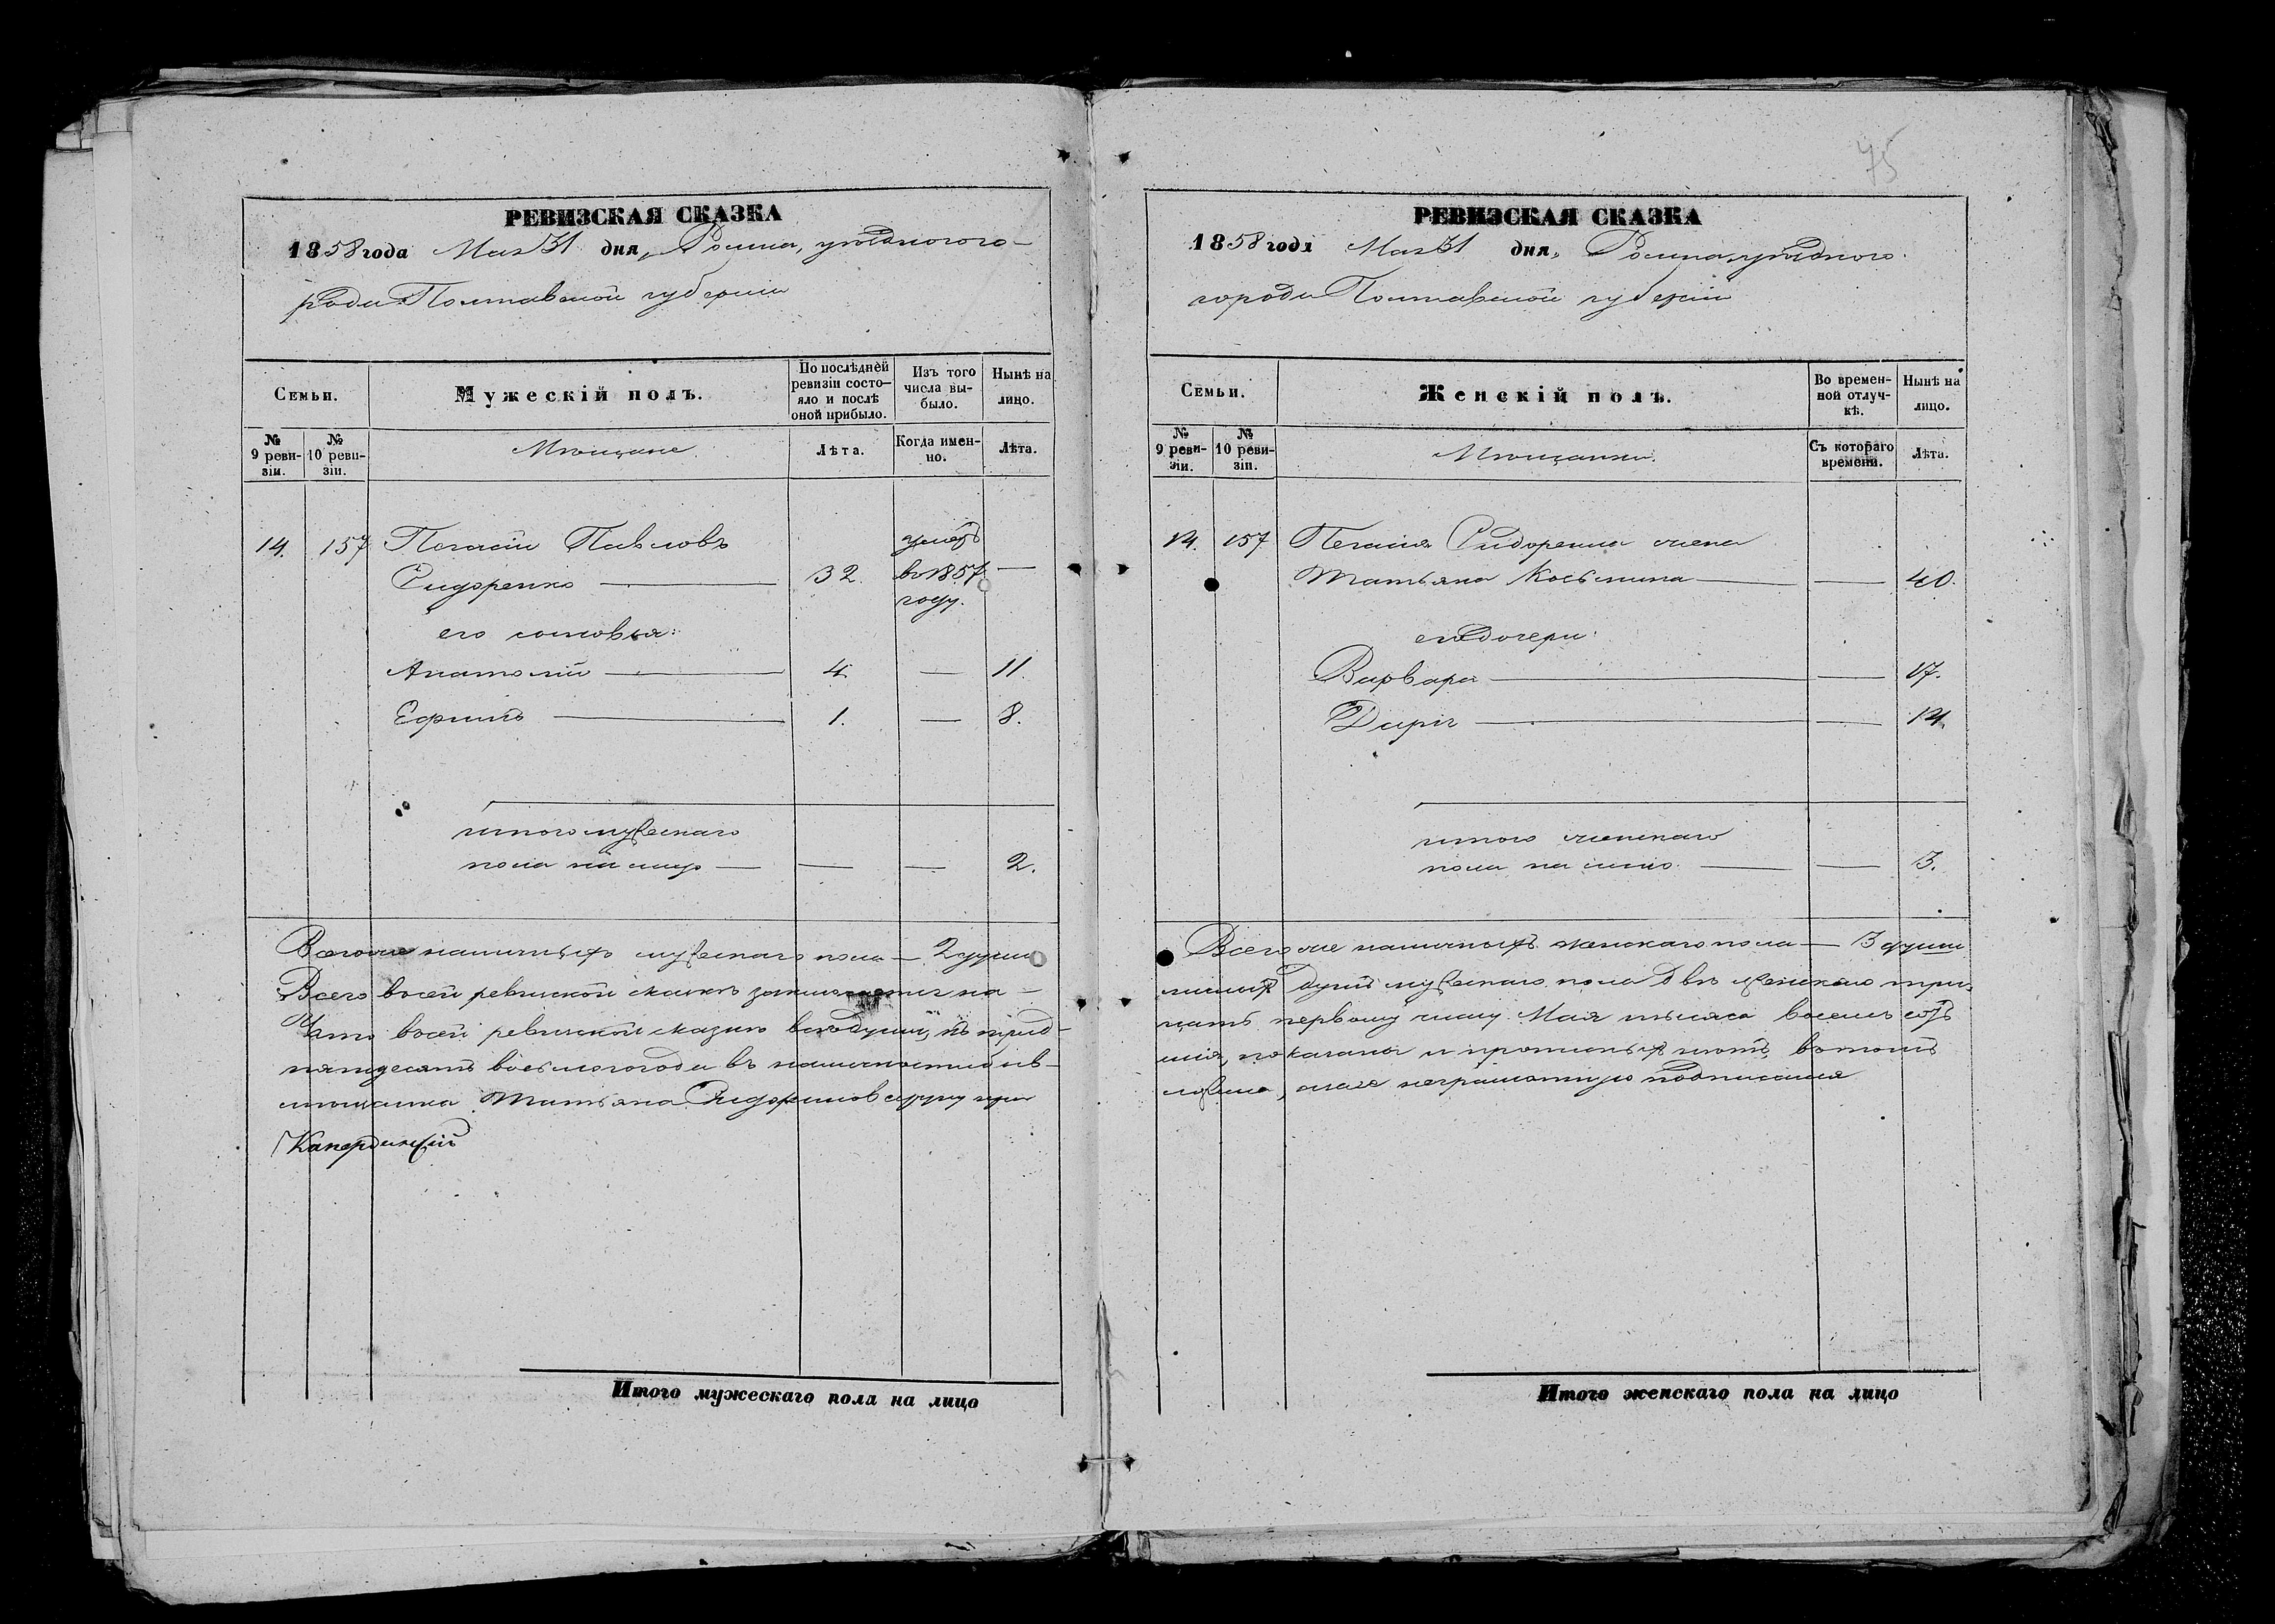 РЕВИЗСКАЯ СКАЗКА
1858 года Мая 31 дня, Ромна, уѣзднаго го-
рода Полтавской губерніи
Семьи.
Мужескій полъ.
По послѣдней ревизіи состо-
яло и послѣ оной прибыло.
Изъ того числа вы-
было.
Нынѣ на лицо.
№ 9 реви-
зіи.
№ 10 реви-
зіи.
Мѣщане
Лѣта.
Когда имен-
но.
Лѣта.
14. 157 Пегасій Павловъ
Сидоренко — 32. умеръ в 1857 году. —
его сыновья:
Анатолій — 4. — 11.
Ефимъ — 1. — 8.
итого мужескаго
пола на лицо — — — 2.
Всего же наличныхъ мужескаго пола — 2 души
Всего всей ревизской сказкѣ заключается на-
Что всей ревизской сказкѣ всѣ души, къ трид-
пятдесятъ восьмого года въ наличности быв-
мѣщанка Татьяна Сидоренкова
75
РЕВИЗСКАЯ СКАЗКА
1858 года Мая 31 дня, Ромна, уѣзднаго
города Полтавской губерніи
Семьи.
Женскій полъ.
Во времен-
ной отлуч-
кѣ.
Нынѣ на лицо.
№ 9 реви-
зіи.
№ 10 реви-
зіи.
Мѣщанки.
Съ котораго времени.
Лѣта.
14. 157 Пегасія Сидоренка жена
Татьяна Косьмина — — 40.
его дочери:
Варвара — — 17.
Дарія — — 14.
итого женскаго
пола на лицо — — 3.
Всего же наличныхъ женскаго пола — 3 души
душъ мужескаго пола двѣ женскаго три.
цать первому числу Мая тысяча восемь сотъ
шія, показаны и прописныхъ нѣтъ, в томъ
неграмотную подписался
Итого мужескаго пола на лицо
Итого женскаго пола на лицо